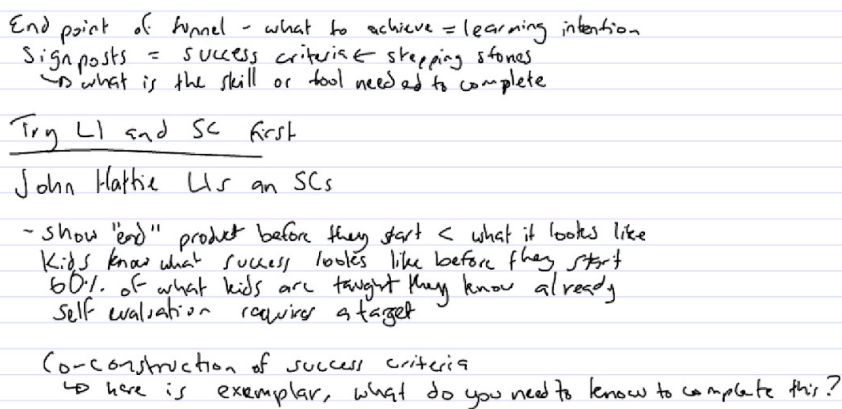 End point of tunnel - what to achieve = learning intention
Signposts = success criteria ← stepping stones
↳ what is the skill or tool needed to complete
Try LI and SC first
John Hattie LIs an SCs
- show "end" product before they start < what it looks like
Kids know what success looks like before they start
60% of what kids are taught they know already
Self evaluation requires a target
Co-construction of success criteria
↳ here is exemplar, what do you need to know to complete this?